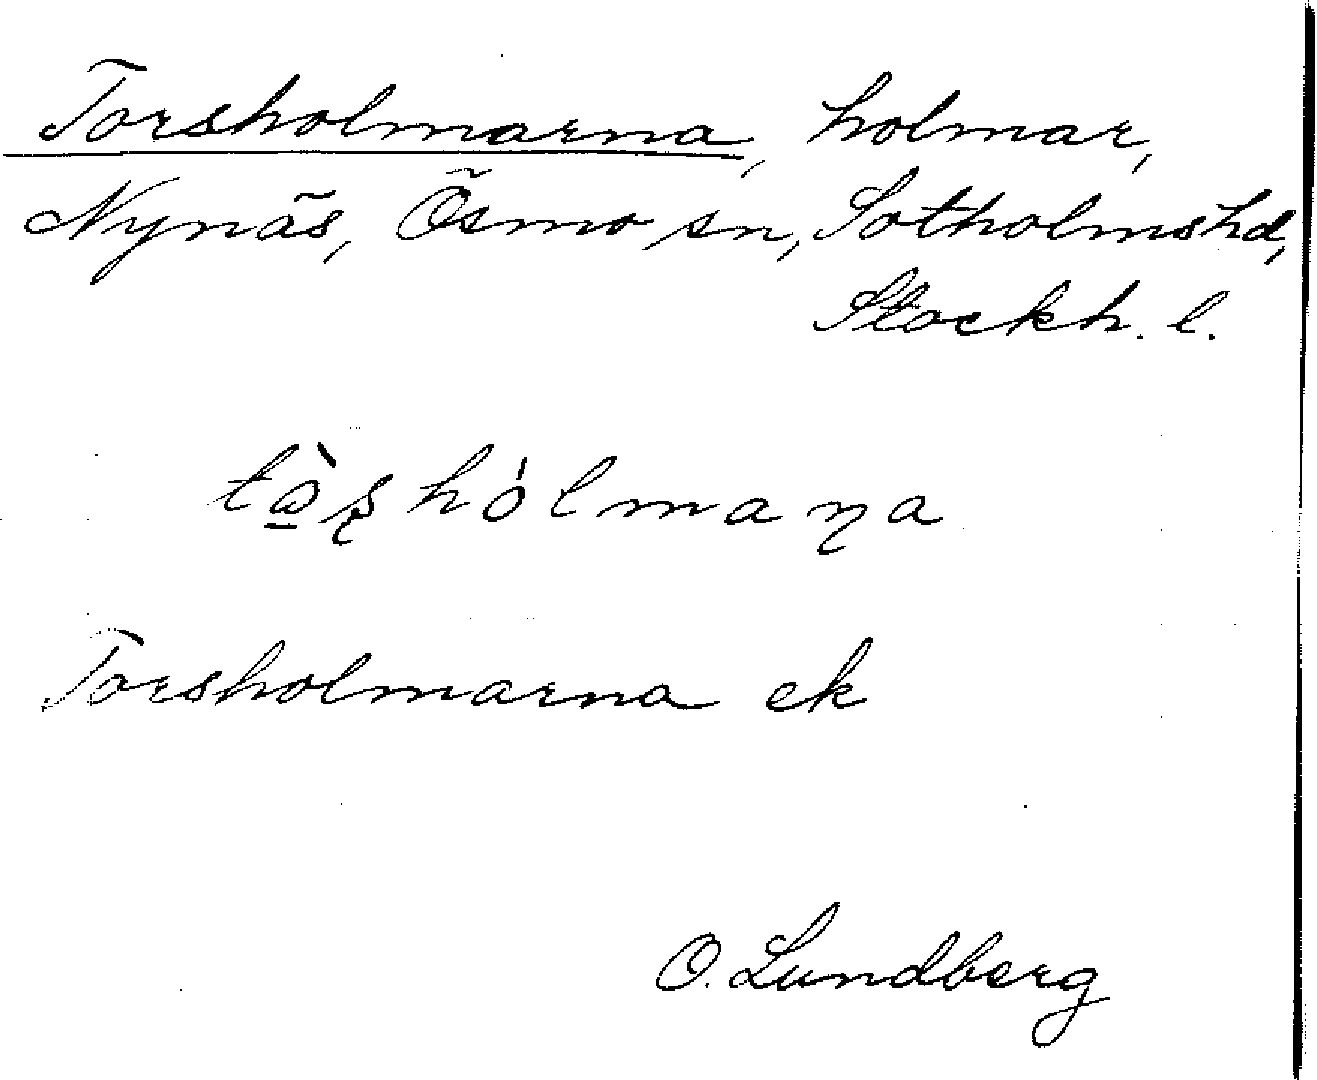 Torsholmarna, holmar,
Nynäs, Ösmo sn, Sotholms hd,
Stockh. l.
tò̱ʂhólmaɳa
Torsholmarna ek
O. Lundberg